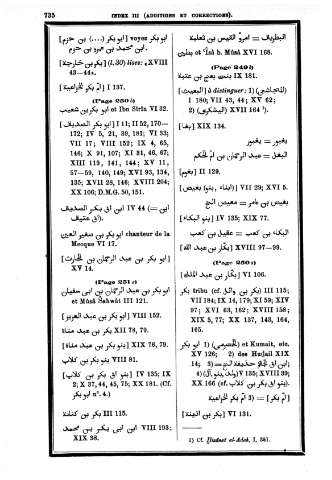 735 INDEX III (ADDITIONS ET CORRECTIONS).
[ابو بكر (....) بن حزم] voyez ابو بكر
ابن محمد بن عمرو بن حزم
[ابو بكر بن خارجة] (l. 30) lisez: «XVIII
43—44».
[ابو بكر الخزاعية] I 137.
(Page 250 b)
ابو بكر بن شعيب et Ibn Sîrîn VI 32.
[ابو بكر الصديق] I 11; II 52, 170—
172; IV 5, 21, 39, 181; VI 33;
VII 17; VIII 152; IX 4, 65,
146; X 91, 107; XI 31, 46, 67;
XIII 119, 141, 144; XV 11,
57—59, 140, 149; XVI 93, 134,
135; XVII 28, 146; XVIII 204;
XX 106; D.M.G. 50, 151.
ابن ابى بكر الصديق IV 44 (= ابن
ابى عتيق).
ابو بكر بن صغير العين chanteur de la
Mecque VI 17.
[ابو بكر بن عبد الرحمان بن الحارث]
XV 14.
(Page 251 a)
ابو بكر بن عبد الرحمان بن ابى سفيان
et Mûsâ Sahwât III 121.
[ابو بكر بن عبد العزيز] VIII 152.
ابو بكر بن عبد مناة XII 78, 79.
[بنو بكر بن عبد مناة] XIX 76, 79.
بنو بكر بن كلاب VIII 81.
[بنو ابى بكر بن كلاب] IV 135; IX
2; X 37, 44, 45, 75; XX 181. (Cf.
ابو بكر n°. 4.)
ابو بكر بن كنانة III 115.
ابن ابى بكر بن محمد VIII 193;
XIX 38.
بن ثعلبة = امرؤ القيس بن ثعلبة
بطين et ʿÎsâ b. Mûsâ XVI 168.
(Page 249 b)
بنت بعج بن عتبة IX 181.
[البعيث] à distinguer: 1) المجاشعى
I 180; VII 43, 44; XV 62;
2) اليشكرى XVII 164 ¹).
[بغا] XIX 134.
بغبور = يغبور
البغل = عبد الرحمان بن ام الحكم
[بغوم] II 129.
[ابناء، بنو) بغيض)] VII 29; XVI 5.
بغيض بن عامر = معيص الخ
[بنو البكاء] IV 135; XIX 77.
البكاء بن كعب = عقيل بن كعب
[بكار بن عبد الله] XVIII 97—99.
(Page 250 a)
[بكار بن عبد الملك] VI 106.
بكر tribu (cf. بكر بن وائل) III 115;
VII 184; IX 14, 179; XI 59; XIV
97; XVI 63, 162; XVIII 158;
XIX 5, 77; XX 137, 143, 164,
165.
ابو بكر 1) الحضرمى et Kumait, etc.
XV 126; 2) des Huḏail XIX
14; 3) =
4) V 135; XVIII 39;
XX 166 (cf. بنو ابى بكر بن كلاب).
[ام بكر] = 3) ام بكر الخزاعية
[بكر بن اذينة] VI 131.
1) Cf. Ḫizânat el-Adab, I, 381.